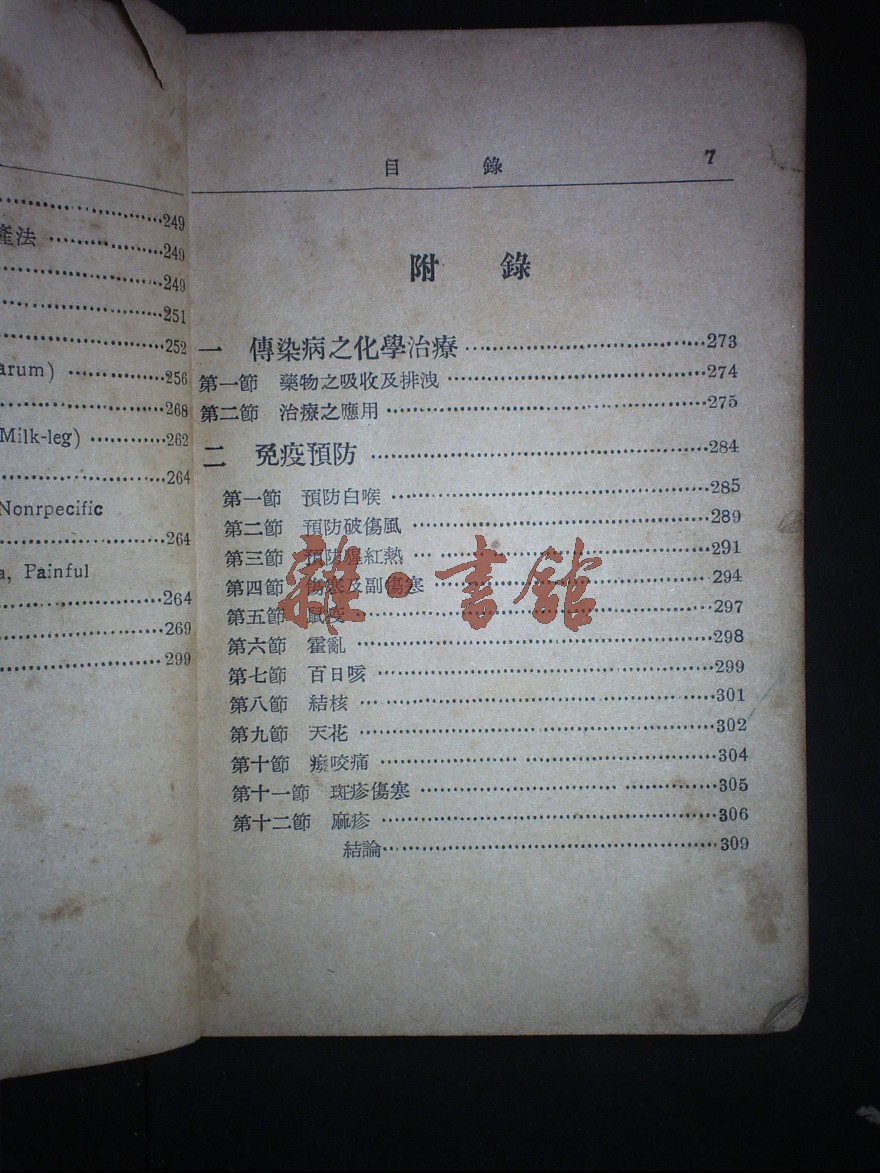 249
產法 249
249
251
252
arum) 256
268
Milk-leg) 262
264
Nonrpecific
264
a, Painful
264
269
299
目 錄 7
附 錄
一 傳染病之化學治療 273
第一節 藥物之吸收及排洩 274
第二節 治療之應用 275
二 免疫預防 284
第一節 預防白喉 285
第二節 預防破傷風 289
第三節 預防猩紅熱 291
第四節 傷寒及副傷寒 294
第五節 鼠疫 297
第六節 霍亂 298
第七節 百日咳 299
第八節 結核 301
第九節 天花 302
第十節 瘈咬痛 304
第十一節 斑疹傷寒 305
第十二節 麻疹 306
結論 309
雜·書館